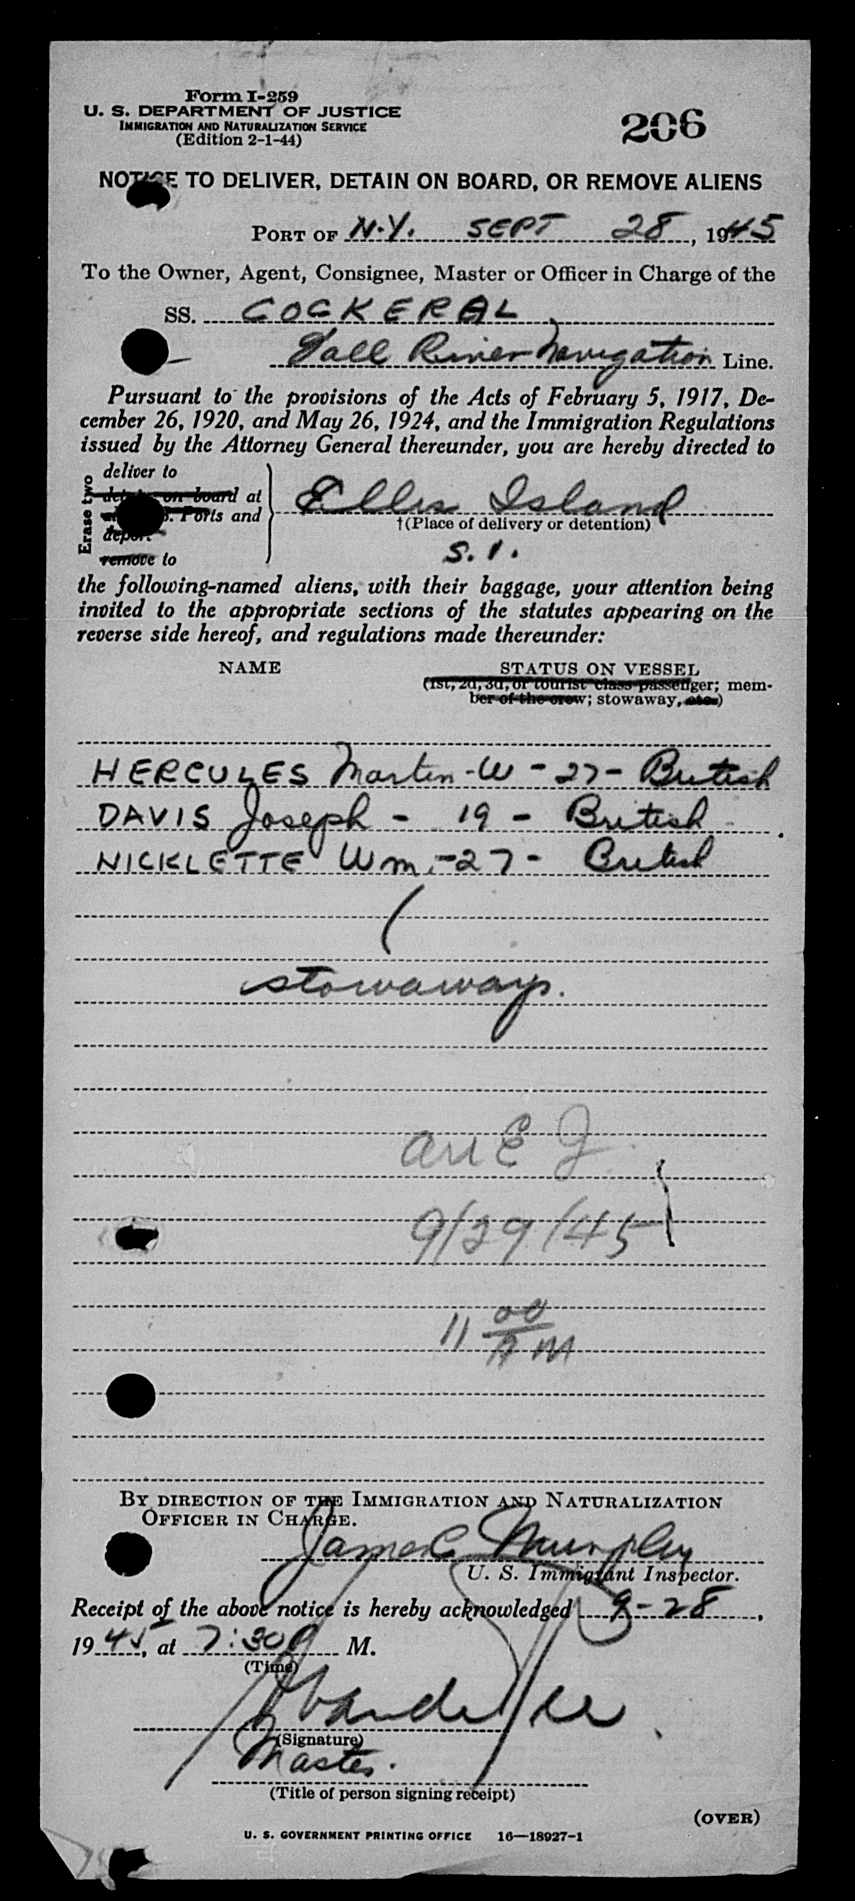 Form I-259
U. S. DEPARTMENT OF JUSTICE
IMMIGRATION AND NATURALIZATION SERVICE
(Edition 2-1-44)
206
NOTICE TO DELIVER, DETAIN ON BOARD, OR REMOVE ALIENS
PORT OF N.Y. SEPT 28, 1945
To the Owner, Agent, Consignee, Master or Officer in Charge of the
SS. COCKERAL
Fall River Navigation Line.
Pursuant to the provisions of the Acts of February 5, 1917, De-
cember 26, 1920, and May 26, 1924, and the Immigration Regulations
issued by the Attorney General thereunder, you are hereby directed to
Erase two
deliver to
on board at
Ports and
deport
remove to
Ellis Island
†(Place of delivery or detention)
S. I.
the following-named aliens, with their baggage, your attention being
invited to the appropriate sections of the statutes appearing on the
reverse side hereof, and regulations made thereunder:
NAME STATUS ON VESSEL
(1st, 2d, 3d, or tourist class passenger; mem-
ber of the crew; stowaway, etc.)
HERCULES Martin - W - 27 - British
DAVIS Joseph - 19 - British
NICKLETTE Wm. - 27 - British
stowaways.
9/29/45
11 00 AM
BY DIRECTION OF THE IMMIGRATION AND NATURALIZATION
OFFICER IN CHARGE.
James Murphy
U. S. Immigrant Inspector.
Receipt of the above notice is hereby acknowledged 9-28,
1945, at 7:30 P M.
(Time)
(Signature)
Master.
(Title of person signing receipt)
(OVER)
U. S. GOVERNMENT PRINTING OFFICE 16—18927-1